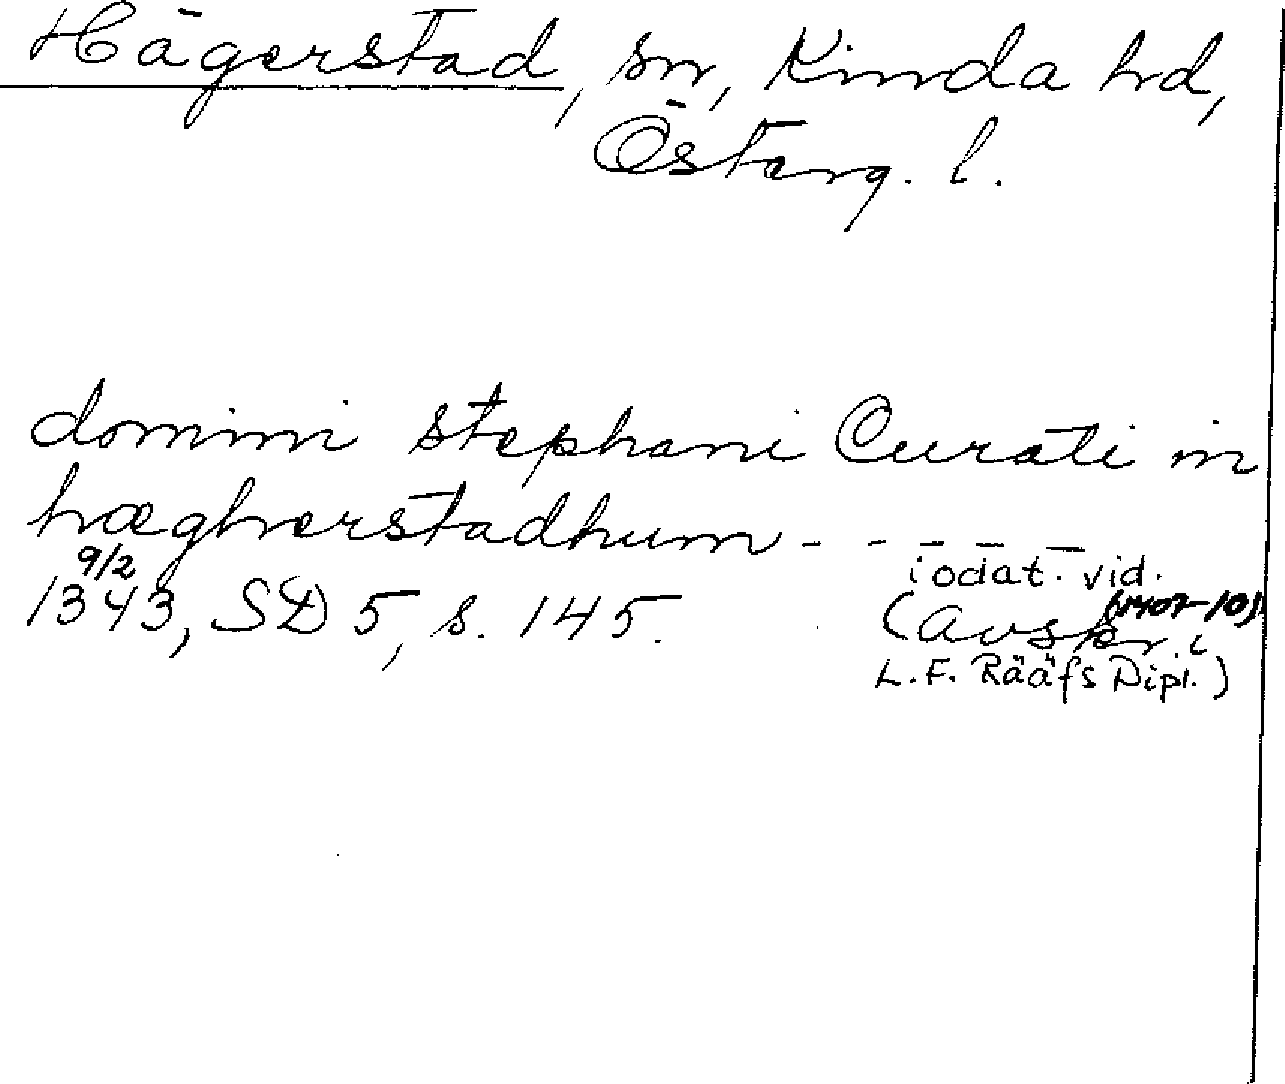 Hägerstad, sn, Kinda hd,
Österg. l.
domini stephani Curati in
hæghærstadhum - - - - -
9/2
1343, SD 5, s. 145.
i odat. vid.
(1407-10)
(avskr. i
L. F. Rääfs Dipl.)